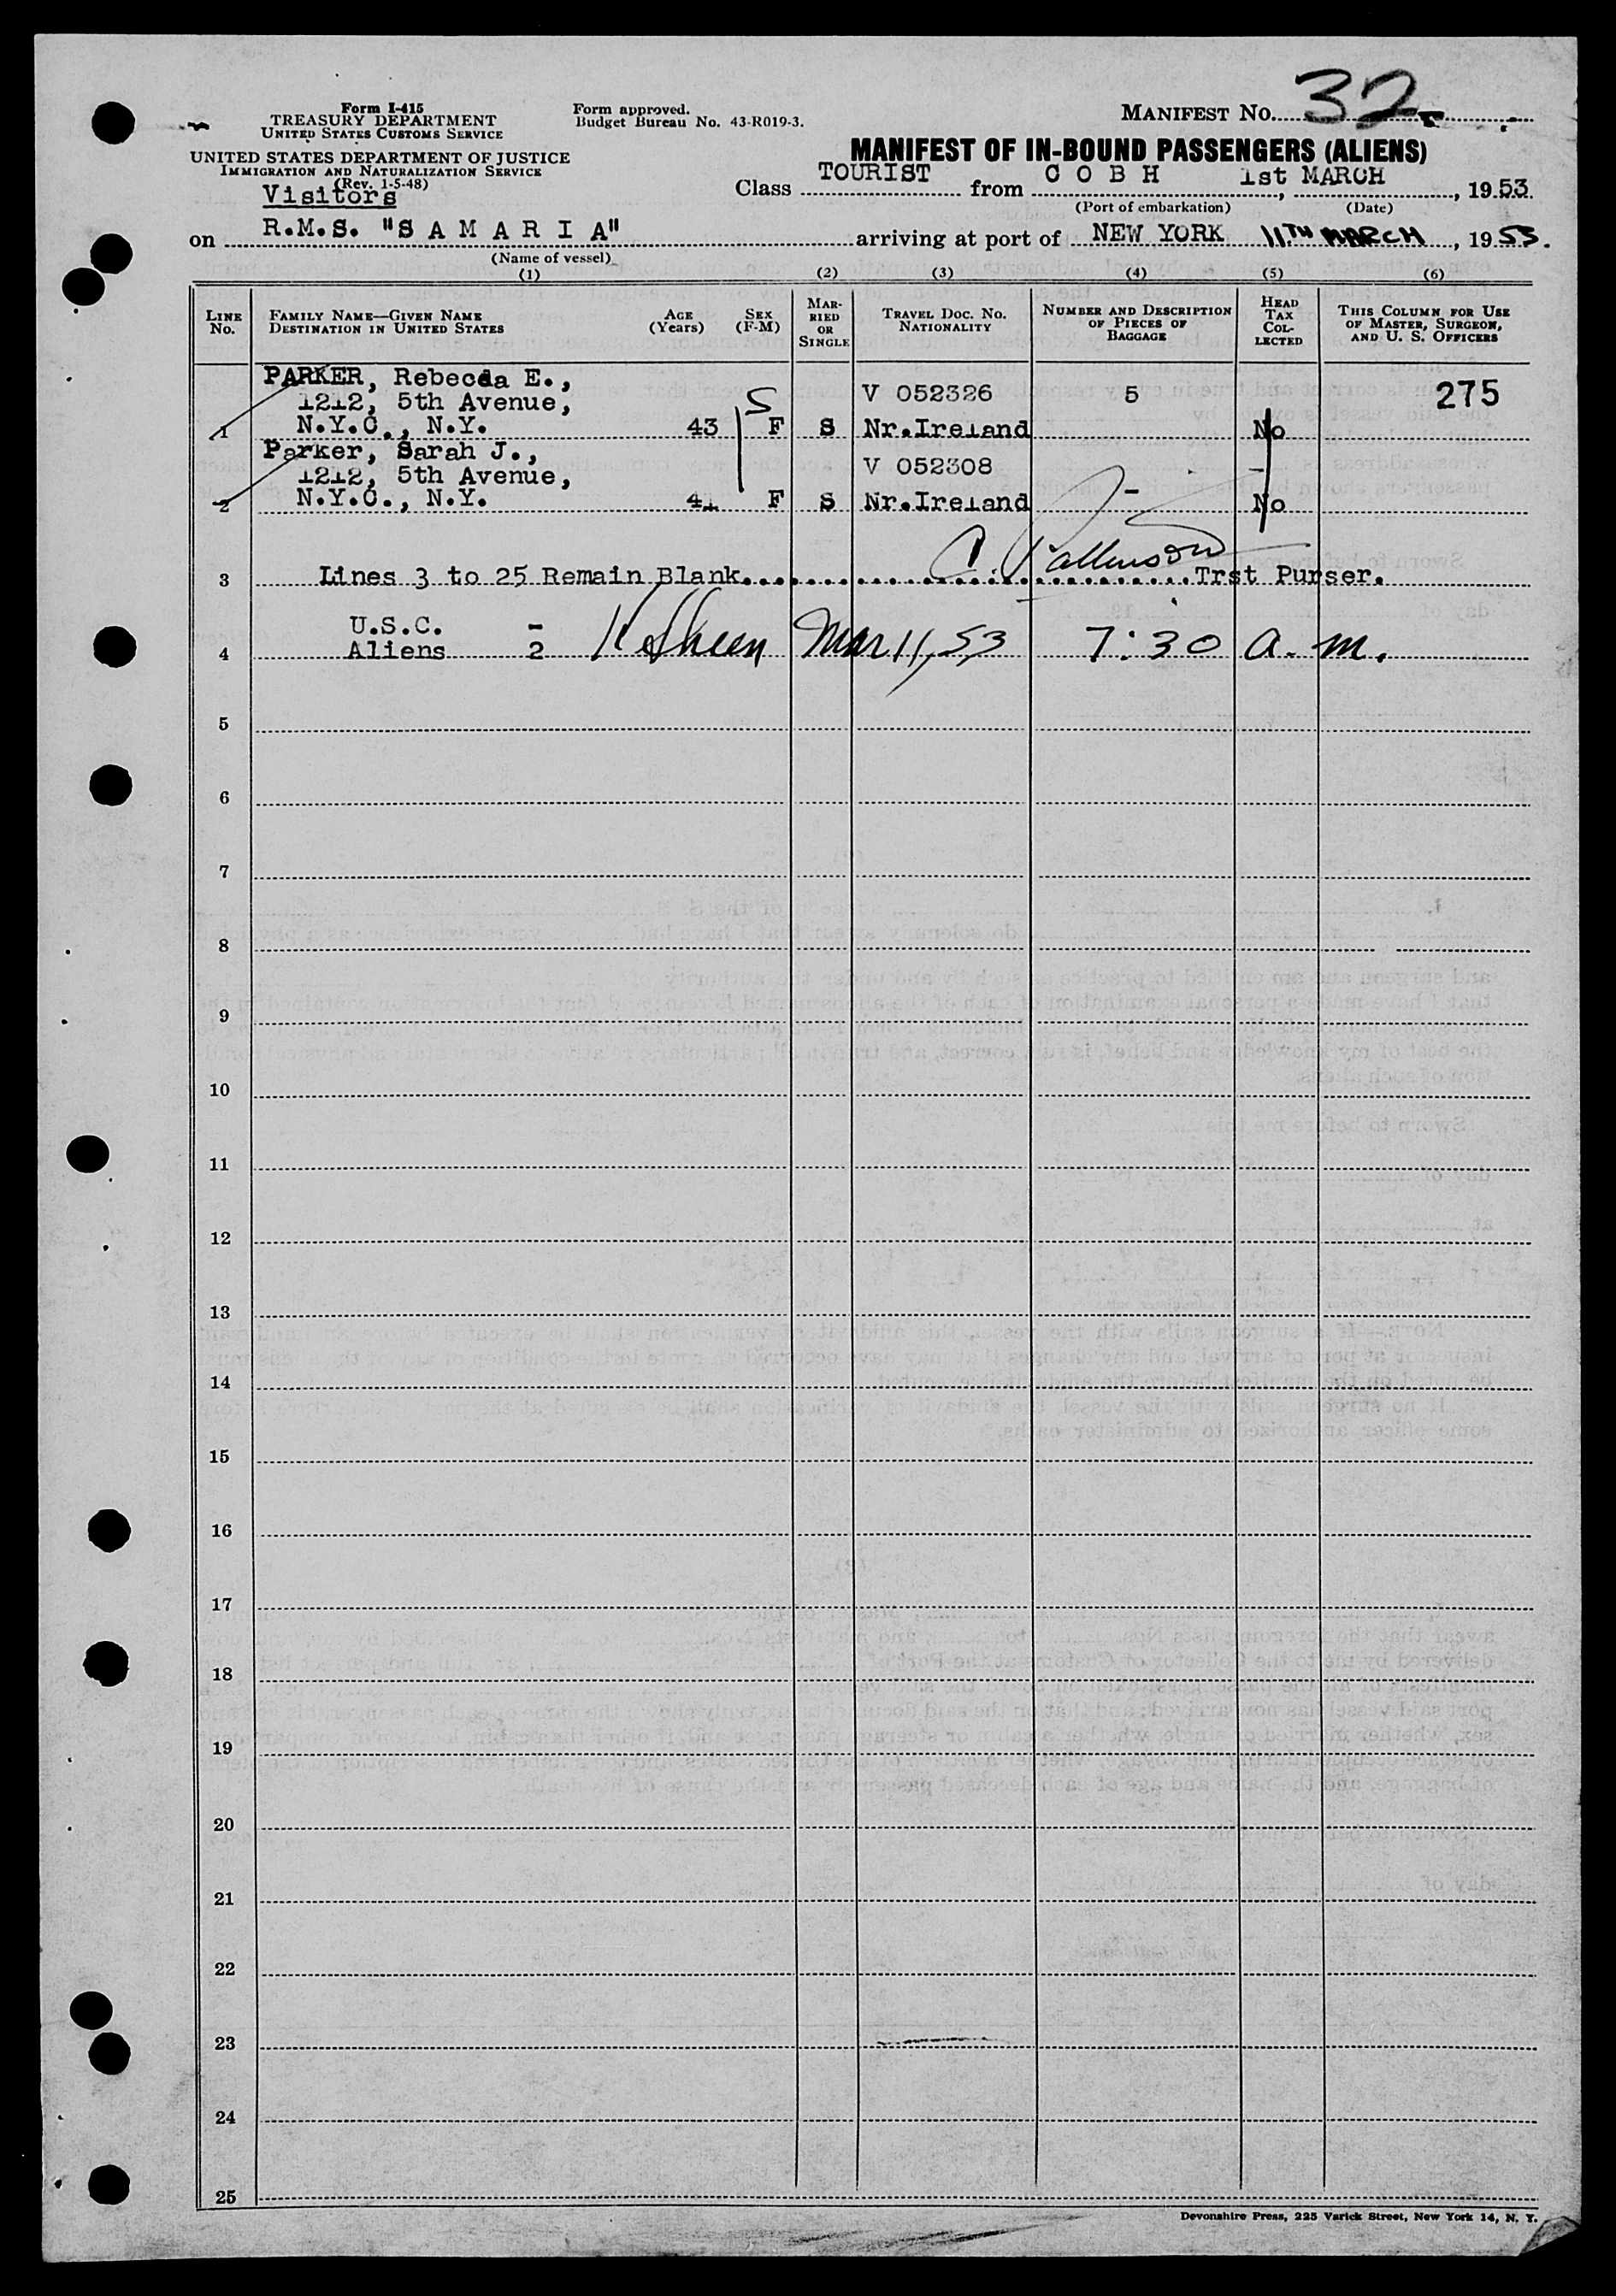 Form I-415
TREASURY DEPARTMENT
UNITED STATES CUSTOMS SERVICE
UNITED STATES DEPARTMENT OF JUSTICE
IMMIGRATION AND NATURALIZATION SERVICE
(Rev. 1-5-48)
Visitors
Form approved.
Budget Bureau No. 43-R019-3.
MANIFEST NO. 32
MANIFEST OF IN-BOUND PASSENGERS (ALIENS)
Class TOURIST from C O B H, 1st MARCH, 1953
(Port of embarkation) (Date)
on R.M.S. "S A M A R I A" arriving at port of NEW YORK 11TH MARCH, 1953.
(Name of vessel)
(1) (2) (3) (4) (5) (6)
LINE NO.
FAMILY NAME—GIVEN NAME
DESTINATION IN UNITED STATES
AGE (Years)
SEX (F-M)
MARRIED OR SINGLE
TRAVEL DOC. NO.
NATIONALITY
NUMBER AND DESCRIPTION OF PIECES OF BAGGAGE
HEAD TAX COLLECTED
THIS COLUMN FOR USE OF MASTER, SURGEON, AND U. S. OFFICERS
PARKER, Rebecca E.,
1212, 5th Avenue, V 052326 5 275
1 N.Y.C., N.Y. 43 F S Nr.Ireland No
S
Parker, Sarah J.,
1212, 5th Avenue, V 052308 - -
2 N.Y.C., N.Y. 41 F S Nr.Ireland No
3 Lines 3 to 25 Remain Blank. Trst Purser.
U.S.C. -
4 Aliens 2 Mar 11, 53 7:30 a.m.
5
6
7
8
9
10
11
12
13
14
15
16
17
18
19
20
21
22
23
24
25
Devonshire Press, 225 Varick Street, New York 14, N. Y.